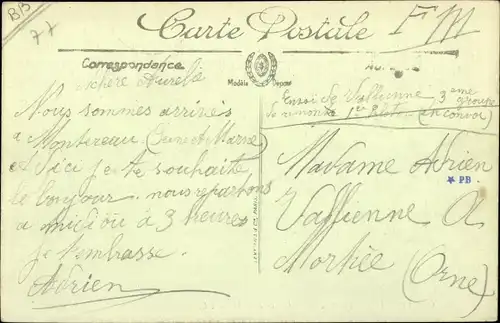 BB
77
Carte Postale
F M
Correspondance
Modèle Déposé
Chère Aurelé
Nous sommes arrivés
a Montereau (Seine et Marne
d'ici je te souhaite
le bonjour. nous repartons
a midi ou à 3 heures
je t'embrasse.
Adrien
Envoi de Vallienne 3 eme groupe
de remonte 1er Peloton (En convoi)
Madame Adrien
Vallienne A
Mortrée
(Orne)
* PB